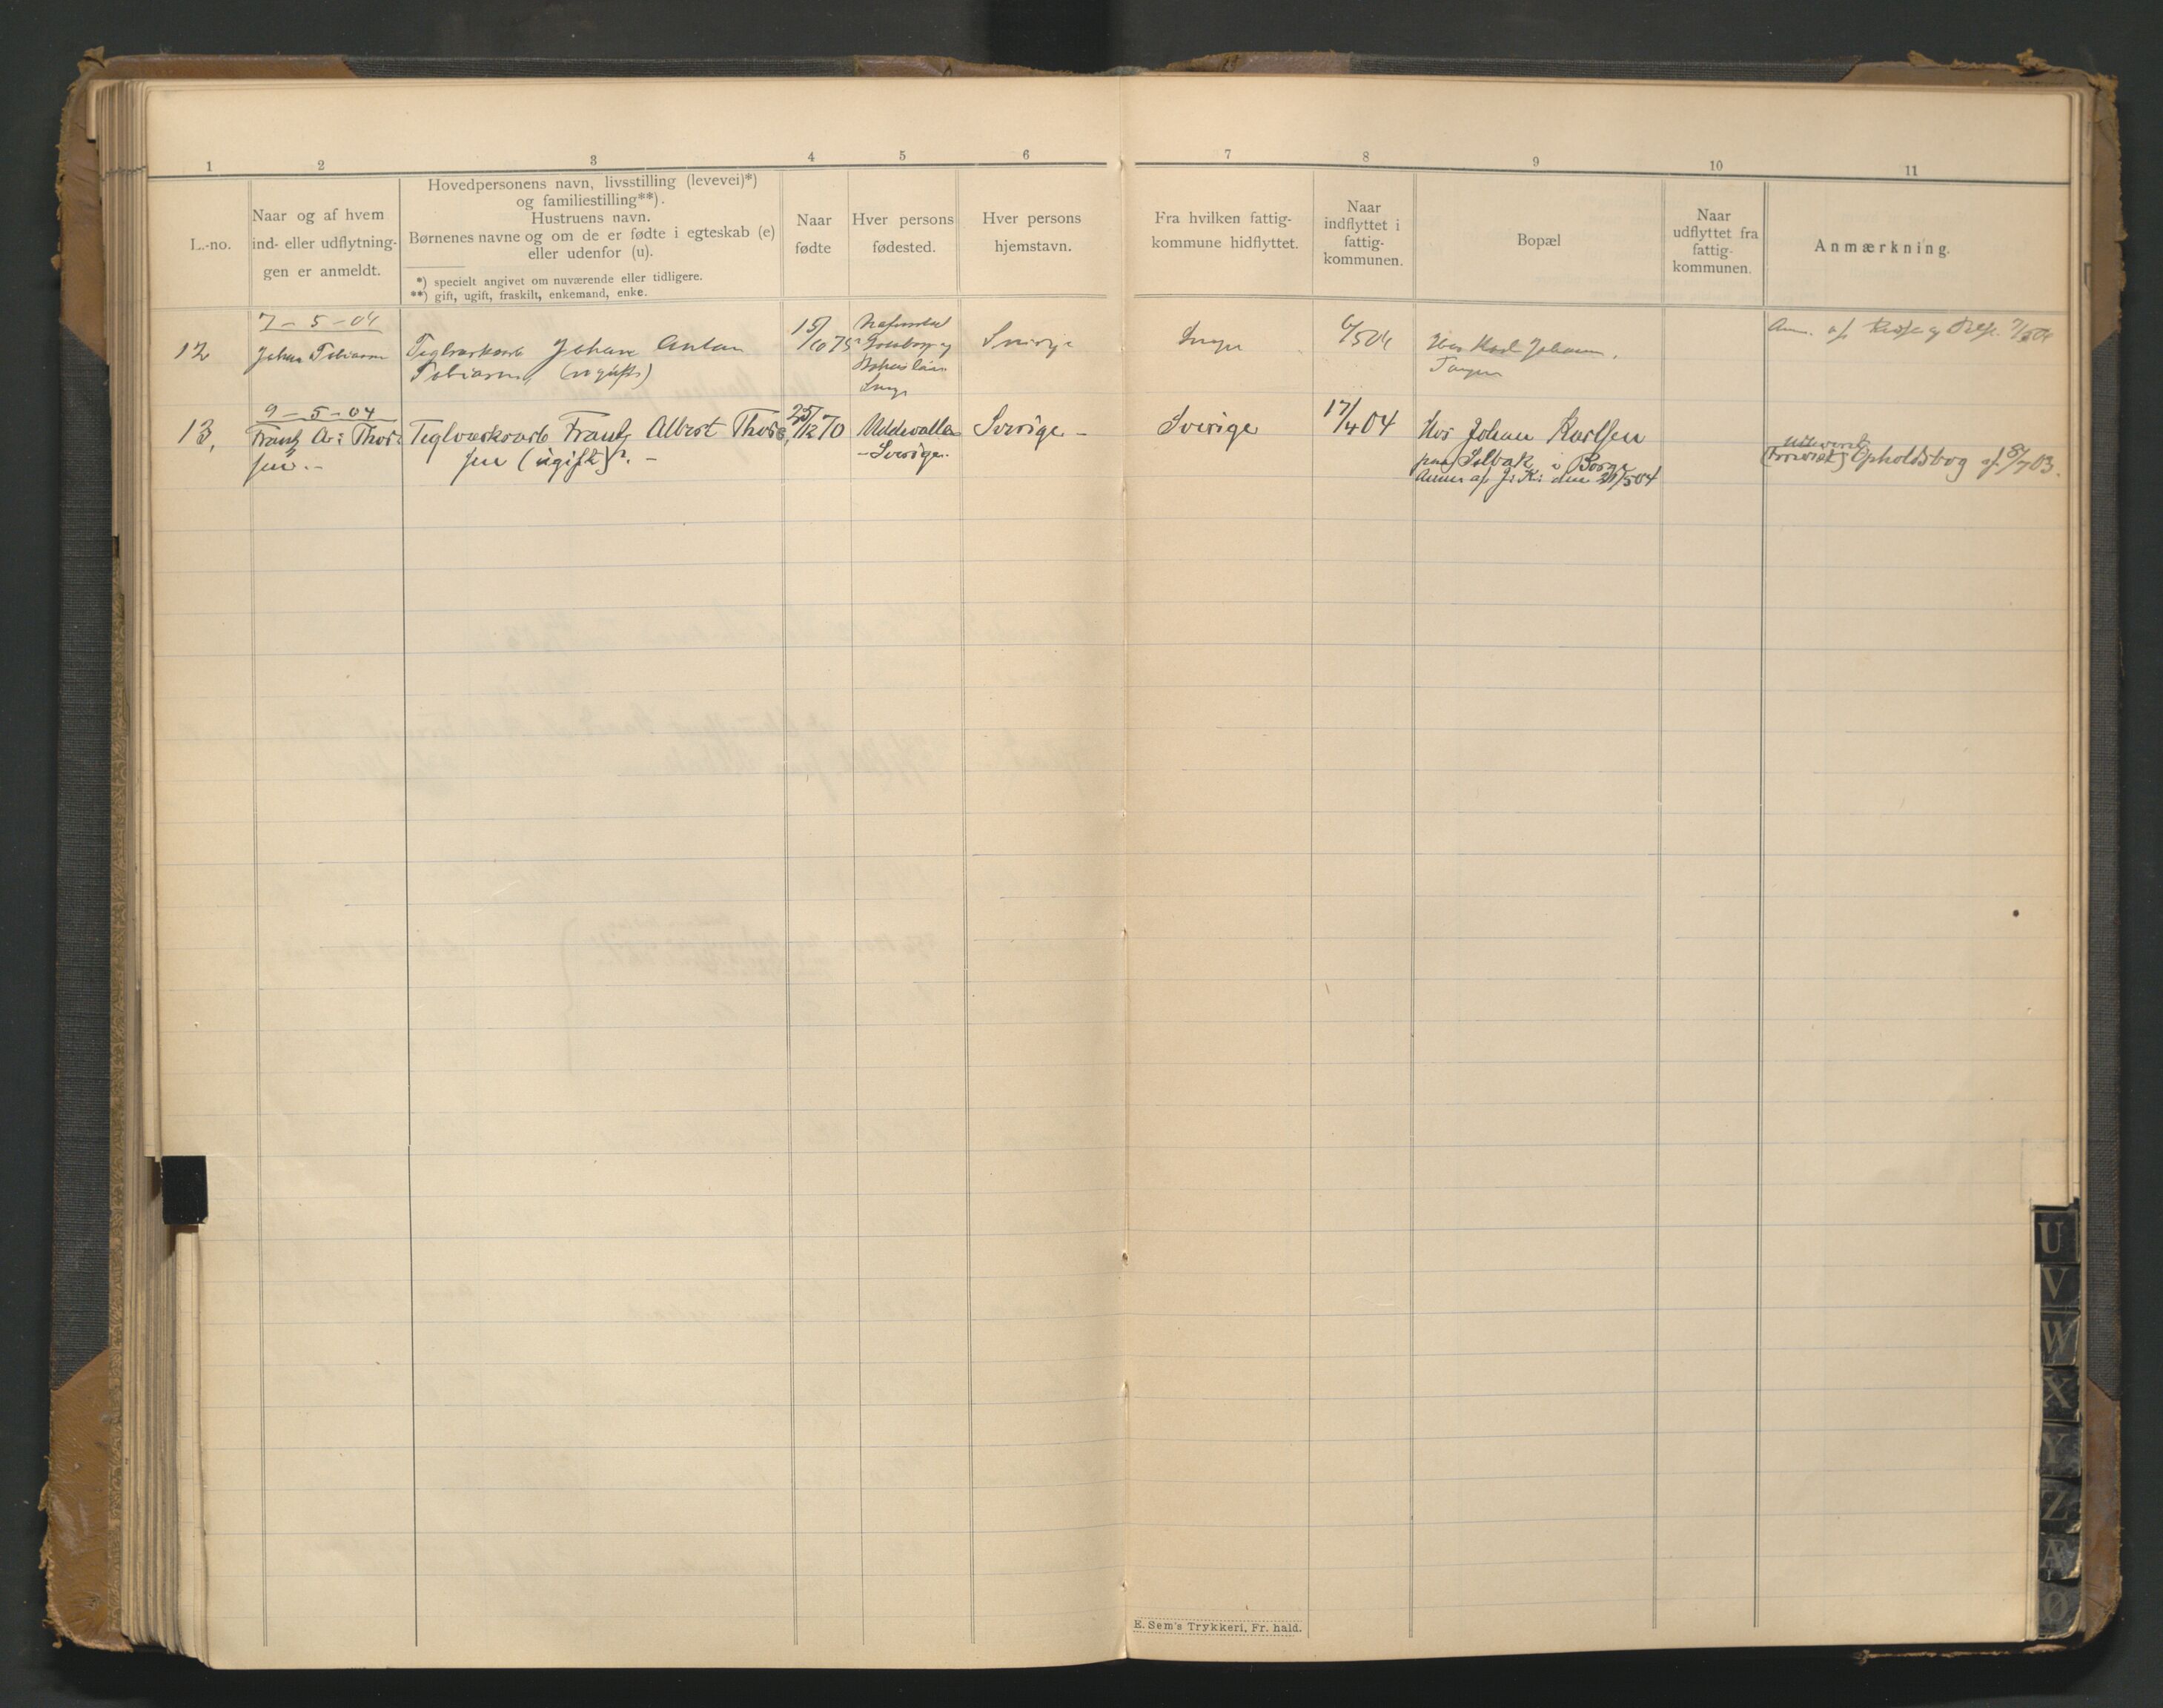 1 2 3 4 5 6 7 8 9 10 11
L.-no.
Naar og af hvem
ind- eller udflytning-
gen er anmeldt.
Hovedpersonens navn, livsstilling (levevei)*)
og familiestilling**).
Hustruens navn.
Børnenes navne og om de er fødte i egteskab (e)
eller udenfor (u).
*) specielt angivet om nuværende eller tidligere.
**) gift, ugift, fraskilt, enkemand, enke.
Naar
fødte
Hver persons
fødested.
Hver persons
hjemstavn.
Fra hvilken fattig-
kommune hidflyttet.
Naar
indflyttet i
fattig-
kommunen.
Bopæl
Naar
udflyttet fra
fattig-
kommunen.
Anmærkning.
12
7-5-04
Johan Tobiasen
Teglverksarb Johan Anton
Tobiasen (ugift)
15/10 75
Göteborg og
Bohuslän
Sverige
Sverige
Sverige
6/5 04
Hos Karl Johansen,
Tangen
Anm. af
13,
9-5-04
Frantz A: Thor-
sen.-
Teglverksarb Frantz Albert Thor-
sen (ugift). -
25/12 70
Uddevalla
-Sverige.
Sverige -
Sverige
17/4 04
Hos Johan Karlsen
paa Selbak i Borge
Anm af J. K. den 21/5 04
Opholdsbog af 8/7 03.
E. Sem's Trykkeri, Fr.hald.
U
V
W
X
Y
Z
Æ
Ø